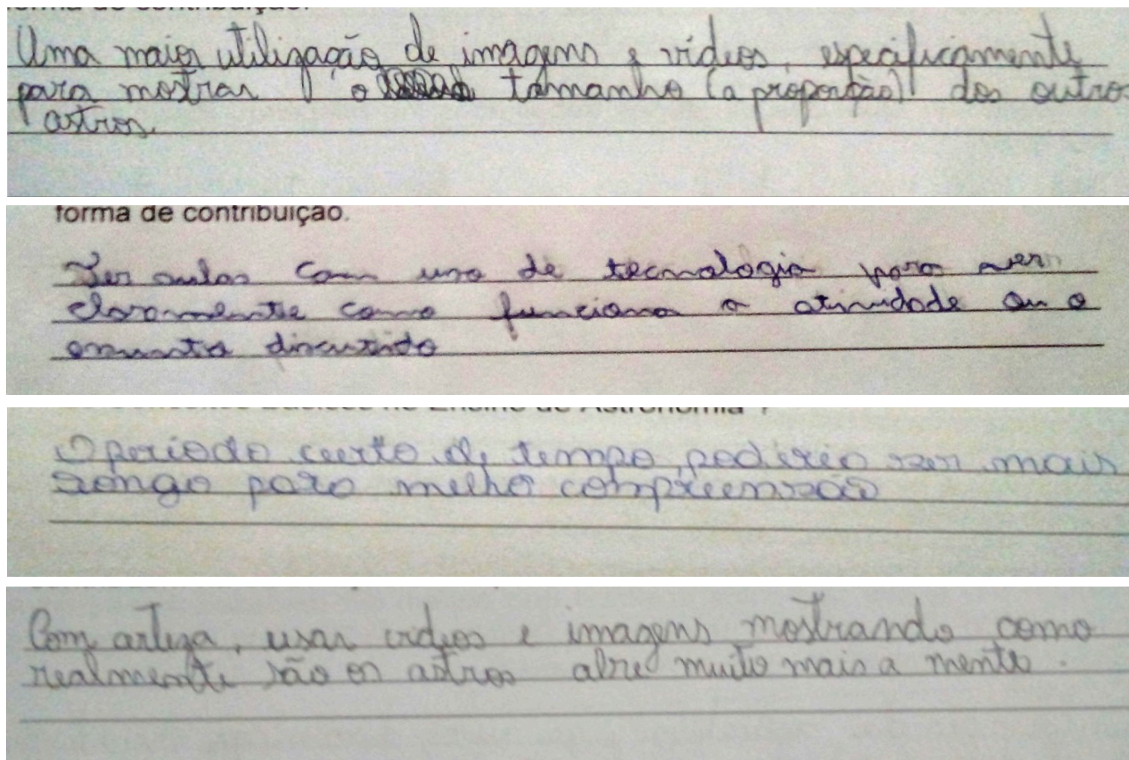 forma de contribuição.
Uma maior utilização de imagens e vídeos, especificamente
para mostrar o tamanho (a proporção) dos outros
astros.
forma de contribuição.
Ter aulas com uso de tecnologia para ver
claramente como funciona a atividade ou o
assunto discutido
no Ensino de Astronomia ?
O periodo curto de tempo, poderia ser mais
longo para melho compreensão
Com arteza, usar videos e imagens mostrando como
realmente são os astros abre muito mais a mente.